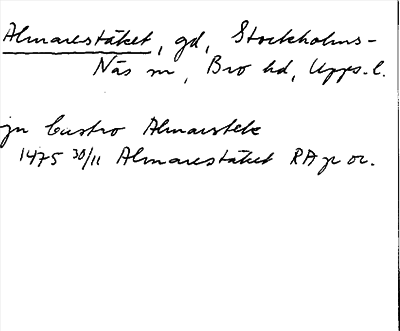 Almarestäket, gd, Stockholms-
Näs sn, Bro hd, Upps. l.
jn Castro Almarstek
1475 30/11 Almarestäket RA p or.